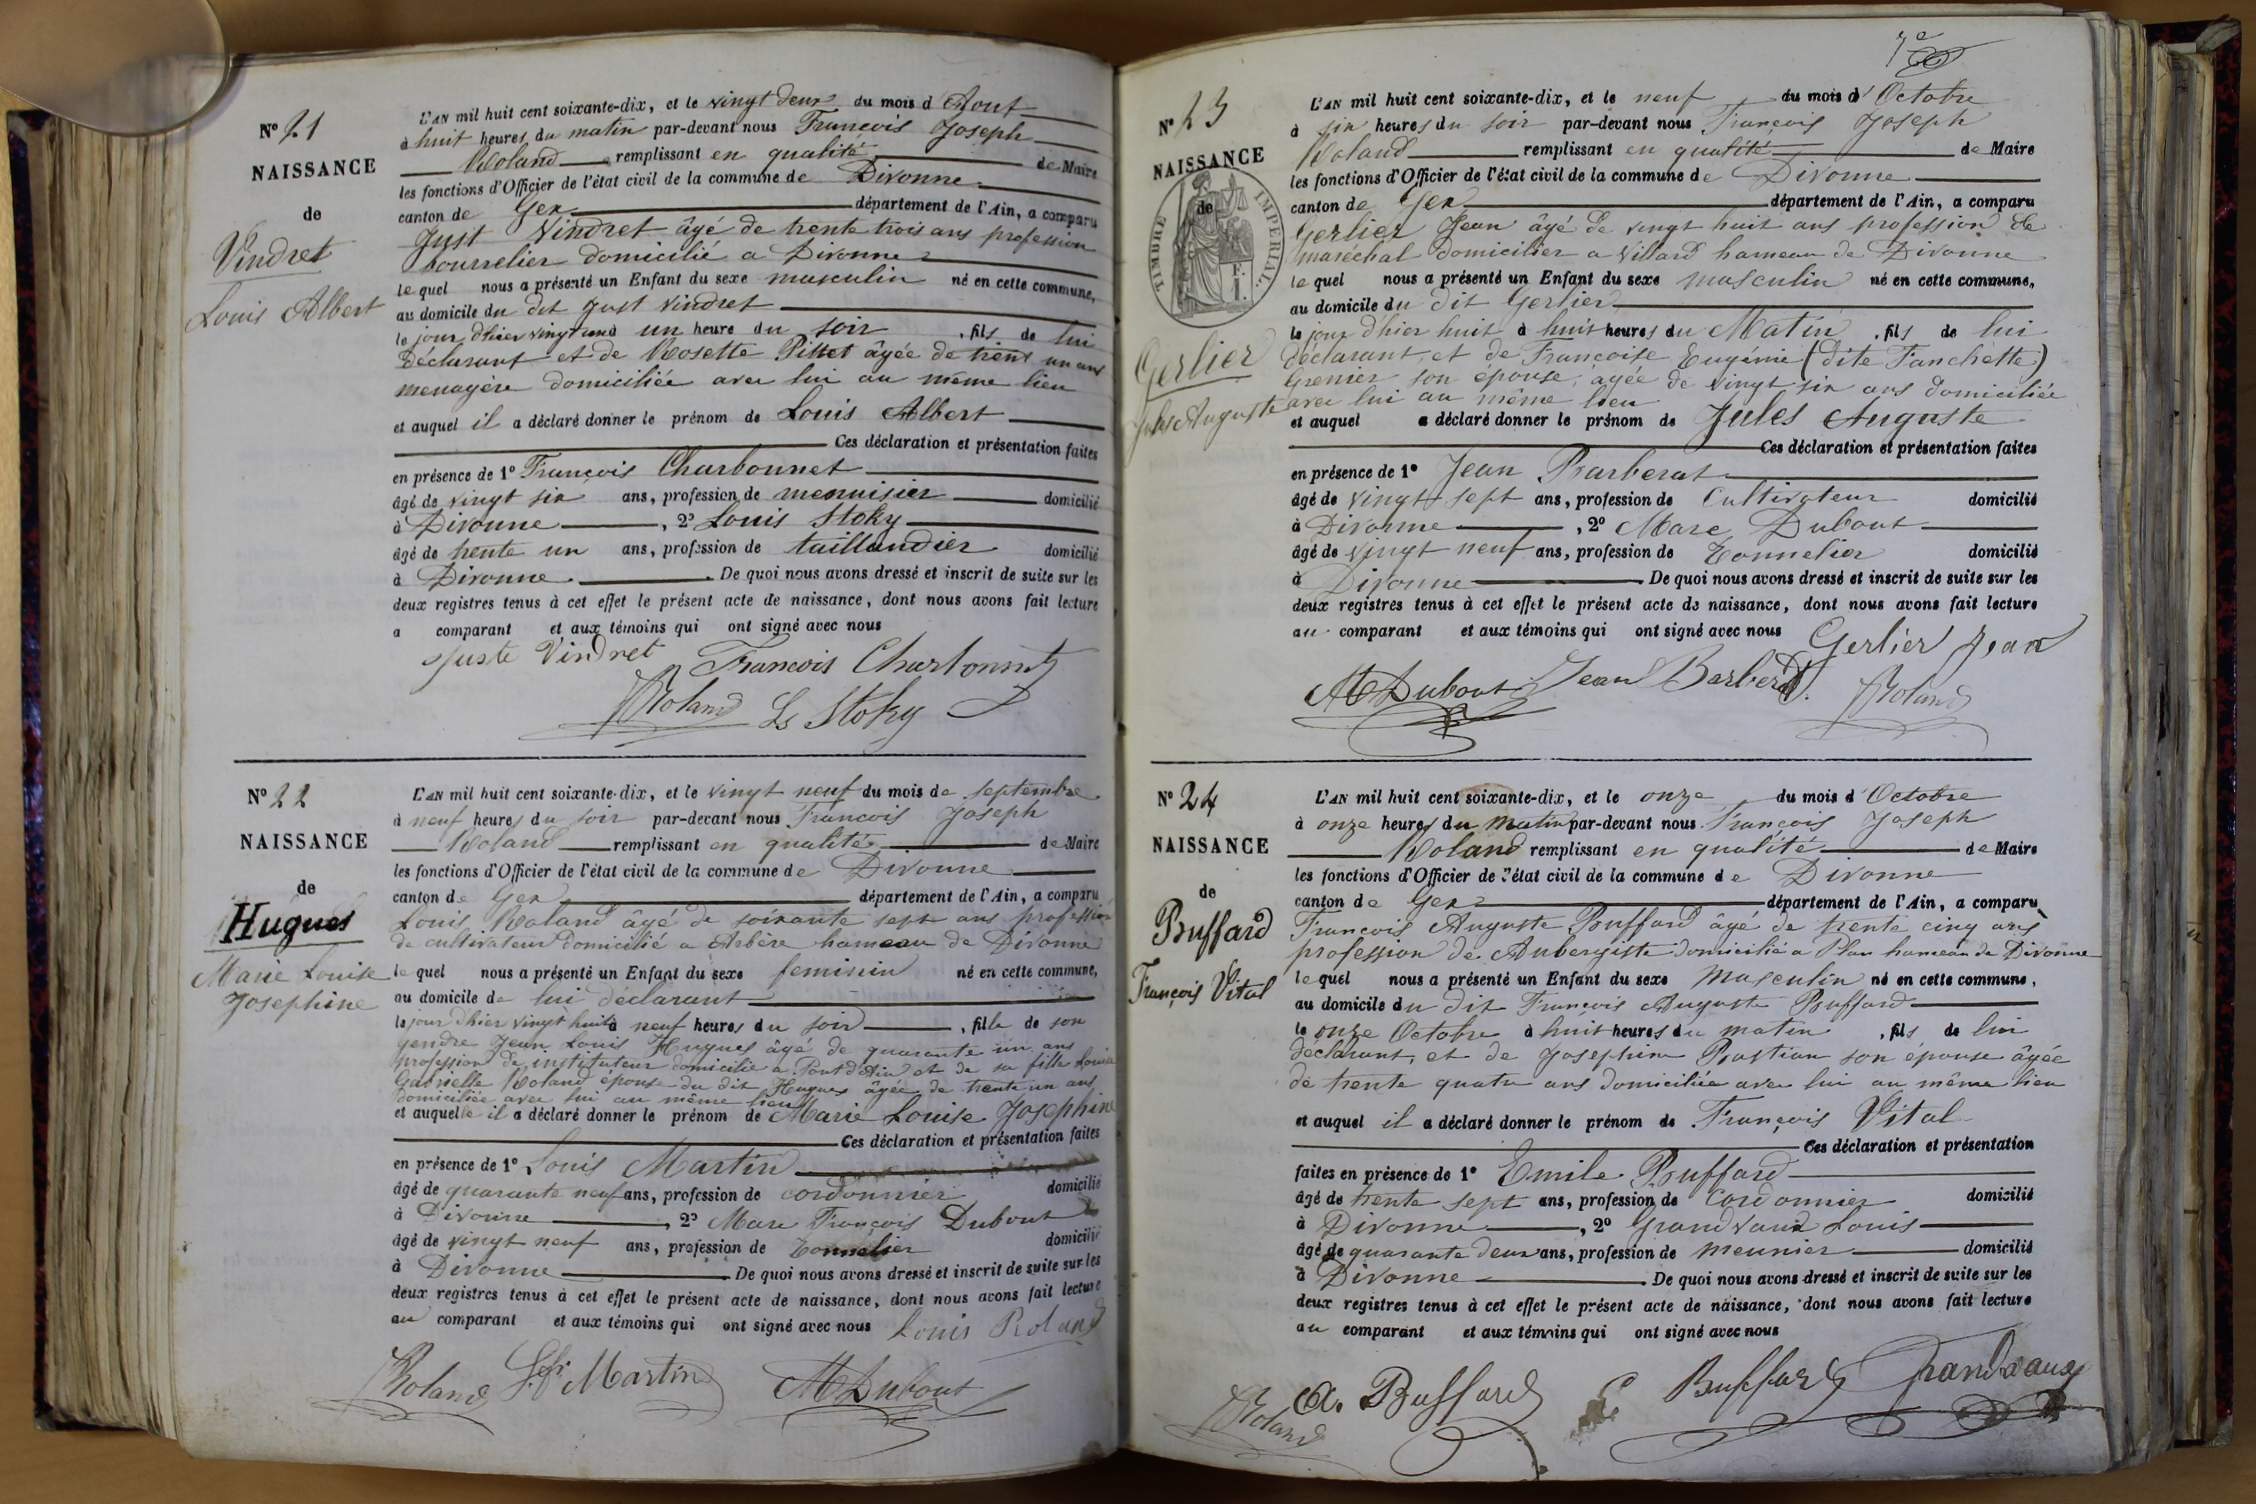 N° 21
NAISSANCE
de
Vindret
Louis Albert
L'AN mil huit cent soixante-dix, et le vingt deux du mois d'Aout
à huit heures du matin par-devant nous François Joseph
Roland remplissant en qualité de Maire
les fonctions d'Officier de l'état civil de la commune de Divonne
canton de Gex département de l'Ain, a comparu
Just Vindret âgé de trente trois ans profession
bourrelier domicilié a Divonne
lequel nous a présenté un Enfant du sexe masculin né en cette commune,
au domicile du dit Just Vindret
le jour d'hier vingt un à un heure du soir, fils de lui
Déclarant et de Rosette Pittet âgée de trent un ans
menagère domiciliée avec lui au même lieu
et auquel il a déclaré donner le prénom de Louis Albert
Ces déclaration et présentation faites
en présence de 1° François Charbonnet
âgé de vingt six ans, profession de menuisier domicilié
à Divonne, 2° Louis Stoky
âgé de trente un ans, profession de taillandier domicilié
à Divonne. De quoi nous avons dressé et inscrit de suite sur les
deux registres tenus à cet effet le présent acte de naissance, dont nous avons fait lecture
a comparant et aux témoins qui ont signé avec nous
Juste Vindret François Charbonnet
Roland Ls Stoky
N° 22
NAISSANCE
de
Hugues
Marie Louise
Josephine
L'AN mil huit cent soixante-dix, et le vingt neuf du mois de septembre
à neuf heures du soir par-devant nous François Joseph
Roland remplissant en qualité de Maire
les fonctions d'Officier de l'état civil de la commune de Divonne
canton de Gex département de l'Ain, a comparu
Louis Roland âgé de soixante sept ans profession
de cultivateur domicilié a Arbère hameau de Divonne
lequel nous a présenté un Enfant du sexe feminin né en cette commune,
au domicile de lui déclarant
le jour d'hier vingt huit à neuf heures du soir, fille de son
gendre Jean Louis Hugues âgé de quarante un ans
profession de instituteur domicilié a Pont d'Ain et de sa fille Louise
Gabrielle Roland épouse du dit Hugues âgée de trente un ans
domiciliée avec lui au même lieu
et auquelle il a déclaré donner le prénom de Marie Louise Josephine
Ces déclaration et présentation faites
en présence de 1° Louis Martin
âgé de quarante neuf ans, profession de cordonnier domicilié
à Divonne, 2° Marc François Dubout
âgé de vingt neuf ans, profession de Tonnelier domicilié
à Divonne De quoi nous avons dressé et inscrit de suite sur les
deux registres tenus à cet effet le présent acte de naissance, dont nous avons fait lecture
au comparant et aux témoins qui ont signé avec nous Louis Roland
Roland Martin M Dubout
7e
N° 23
NAISSANCE
de
TIMBRE IMPERIAL
Gerlier
Jules Auguste
L'AN mil huit cent soixante-dix, et le neuf du mois d'Octobre
à six heures du soir par-devant nous François Joseph
Roland remplissant en qualité de Maire
les fonctions d'Officier de l'état civil de la commune de Divonne
canton de Gex département de l'Ain, a comparu
Gerlier Jean âgé de vingt huit ans profession de
maréchal domicilier a Villard hameau de Divonne
lequel nous a présenté un Enfant du sexe masculin né en cette commune,
au domicile du dit Gerlier
le jour d'hier huit à huit heures du Matin, fils de lui
déclarant, et de Françoise Eugénie (dite Fanchette)
Grenier son épouse, âgée de vingt six ans domiciliée
avec lui au même lieu
et auquel a déclaré donner le prénom de Jules Auguste
Ces déclaration et présentation faites
en présence de 1° Jean Barberat
âgé de vingt sept ans, profession de Cultivateur domicilié
à Divonne, 2° Marc Dubout
âgé de vingt neuf ans, profession de Tonnelier domicilié
à Divonne. De quoi nous avons dressé et inscrit de suite sur les
deux registres tenus à cet effet le présent acte de naissance, dont nous avons fait lecture
au comparant et aux témoins qui ont signé avec nous Gerlier Jean
M Dubout Jean Barberat Roland
N° 24
NAISSANCE
de
Buffard
François Vital
L'AN mil huit cent soixante-dix, et le onze du mois d'Octobre
à onze heures du matin par-devant nous François Joseph
Roland remplissant en qualité de Maire
les fonctions d'Officier de l'état civil de la commune de Divonne
canton de Gex département de l'Ain, a comparu
François Auguste Buffard âgé de trente cinq ans
profession de Aubergiste domicilié a Plan hameau de Divonne
lequel nous a présenté un Enfant du sexe Masculin né en cette commune,
au domicile du dit François Auguste Buffard
le onze Octobre à huit heures du matin, fils de lui
déclarant, et de Josephine Bastian son épouse âgée
de trente quatre ans domiciliée avec lui au même lieu
et auquel il a déclaré donner le prénom de François Vital
Ces déclaration et présentation
faites en présence de 1° Emile Buffard
âgé de trente sept ans, profession de Cordonnier domicilié
à Divonne, 2° Grandvaux Louis
âgé de quarante deux ans, profession de meunier domicilié
à Divonne. De quoi nous avons dressé et inscrit de suite sur les
deux registres tenus à cet effet le présent acte de naissance, dont nous avons fait lecture
au comparant et aux témoins qui ont signé avec nous
Roland A. Buffard E Buffard Grandvaux